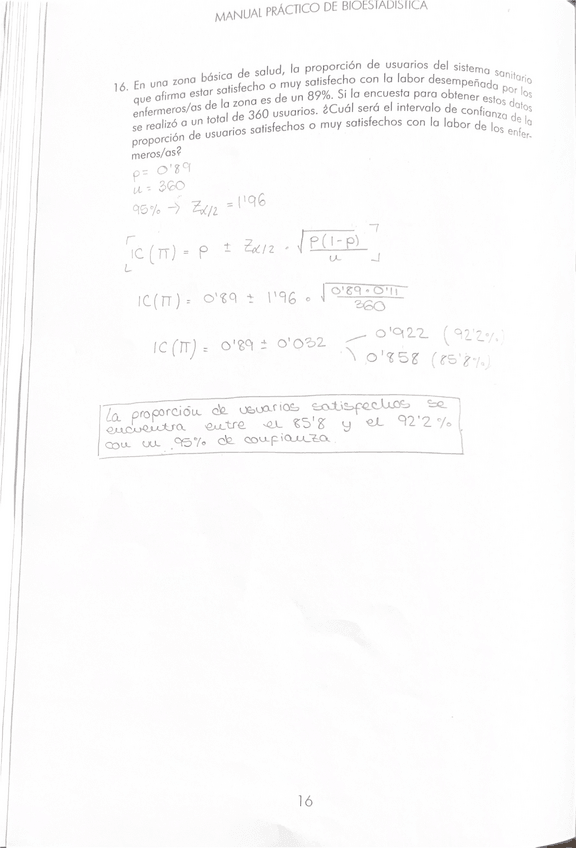 MANUAL PRÁCTICO DE BIOESTADÍSTICA
16. En una zona básica de salud, la proporción de usuarios del sistema sanitario
que afirma estar satisfecho o muy satisfecho con la labor desempeñada por los
enfermeros/as de la zona es de un 89%. Si la encuesta para obtener estos datos
se realizó a un total de 360 usuarios. ¿Cuál será el intervalo de confianza de la
proporción de usuarios satisfechos o muy satisfechos con la labor de los enfer-
meros/as?
p= 0'89
n = 360
95% → Zα/2 = 1'96
IC(π) = p ± Zα/2 · √(p(1-p)/n)
IC(π) = 0'89 ± 1'96 · √(0'89·0'11/360)
IC(π) = 0'89 ± 0'032
0'922 (92'2%)
0'858 (85'8%)
La proporción de usuarios satisfechos se
encuentra entre el 85'8 y el 92'2%
con un 95% de confianza.
16